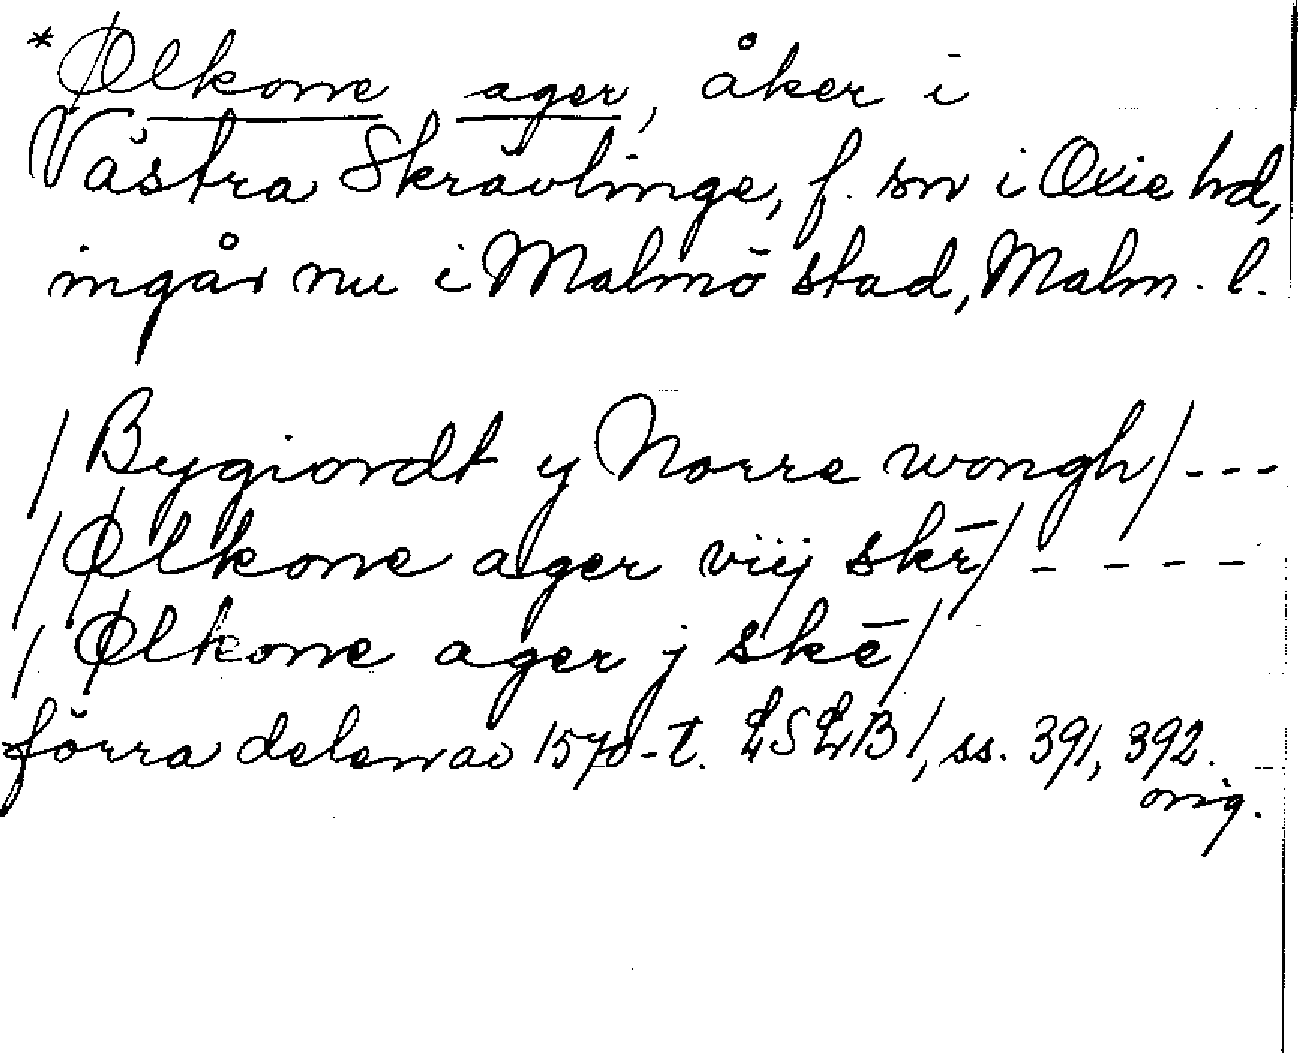 *Ølkone ager, åker i
Västra Skrävlinge, f. sn i Oxie hd,
ingår nu i Malmö stad, Malm. l.
/Bygiordt y Norre wongh/ ---
/Ølkone ager viij skē/ ----
/Ølkone ager j skē/
förra delen av 1570-t. LSLB 1, ss. 391, 392.
orig.